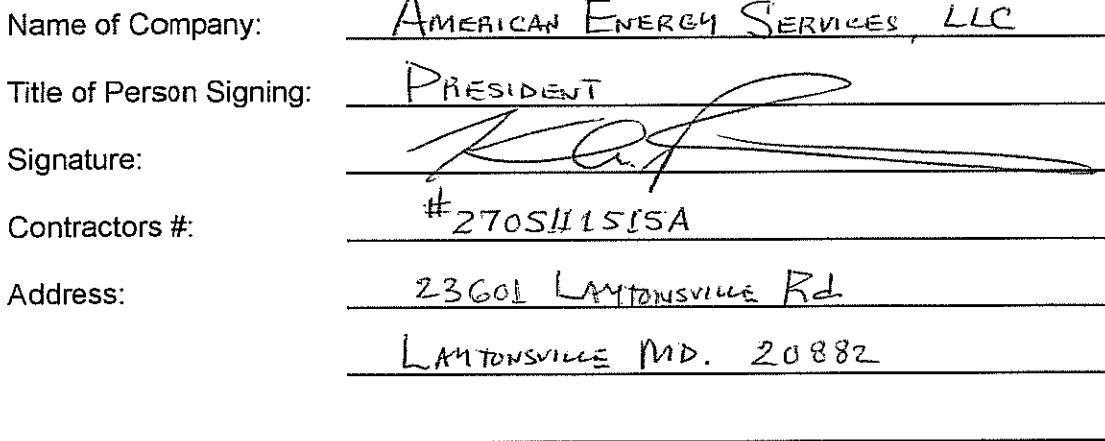 Name of Company: AMERICAN ENERGY SERVICES, LLC
Title of Person Signing: PRESIDENT
Signature:
Contractors #: #2705111515A
Address: 23601 LAYTONSVILLE Rd
LAYTONSVILLE MD. 20882